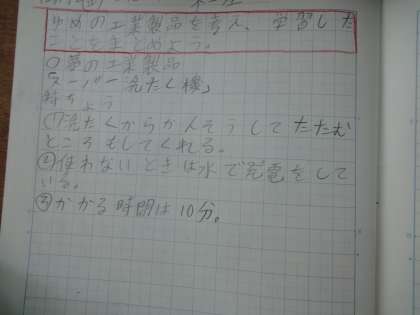 ゆめの工業製品を考え、学習した
ことをまとめよう。
○夢の工業製品
「スーパー洗たく機」
特ちょう
①洗たくからかんそうしてたたむ
ところもしてくれる。
②使わないときは水で充電をして
いる。
③かかる時間は10分。